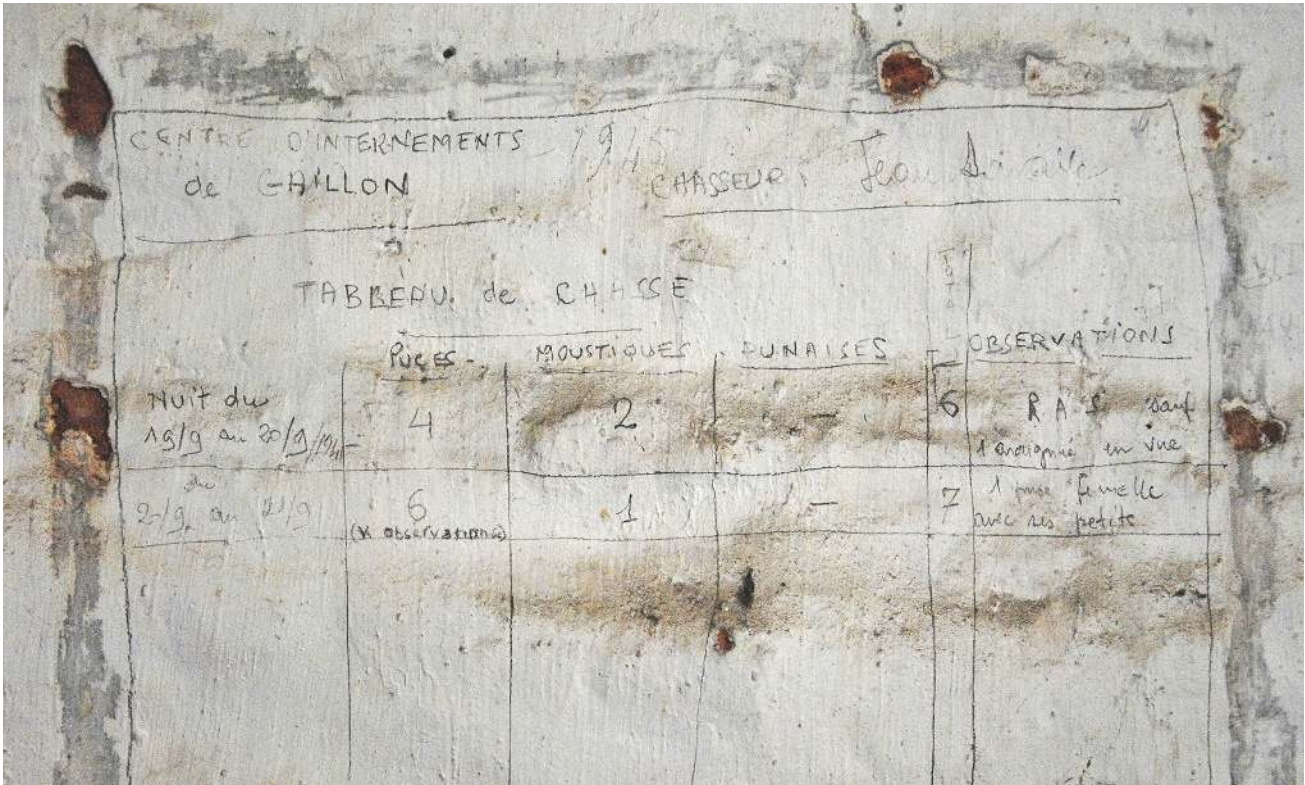 CENTRE D'INTERNEMENTS 1945
de GAILLON
CHASSEUR: Jean
TABLEAU de CHASSE
PUCES - MOUSTIQUES PUNAISES TOTAL OBSERVATIONS
Nuit du
19/9 au 20/9/194 4 2 - 6 R A S sauf
1 araignée en vue
du
20/9 au 21/9 6 1 - 7 1 puce femelle
(x observations) avec ses petits